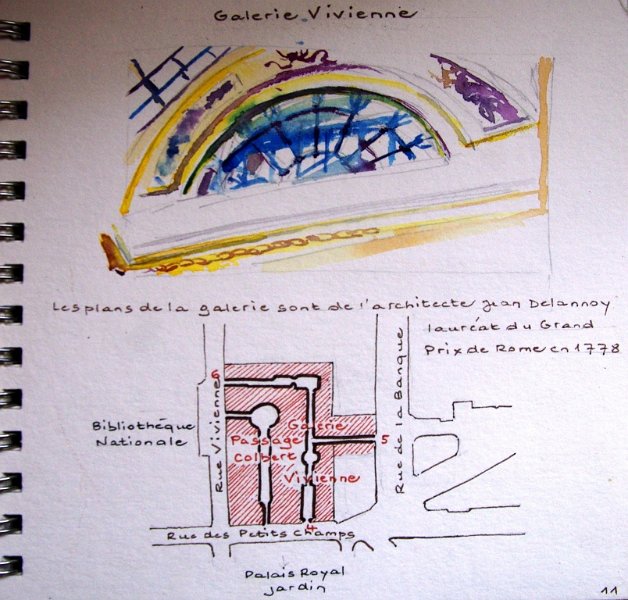 Galerie Vivienne
Les plans de la galerie sont de l'architecte Jean Delannoy
lauréat du Grand
Prix de Rome en 1778
6
Bibliothéque
Nationale
Rue Vivienne
Galerie
Passage
Colbert
Vivienne
5
Rue de la Banque
4
Rue des Petits Champs
Palais Royal
jardin
11